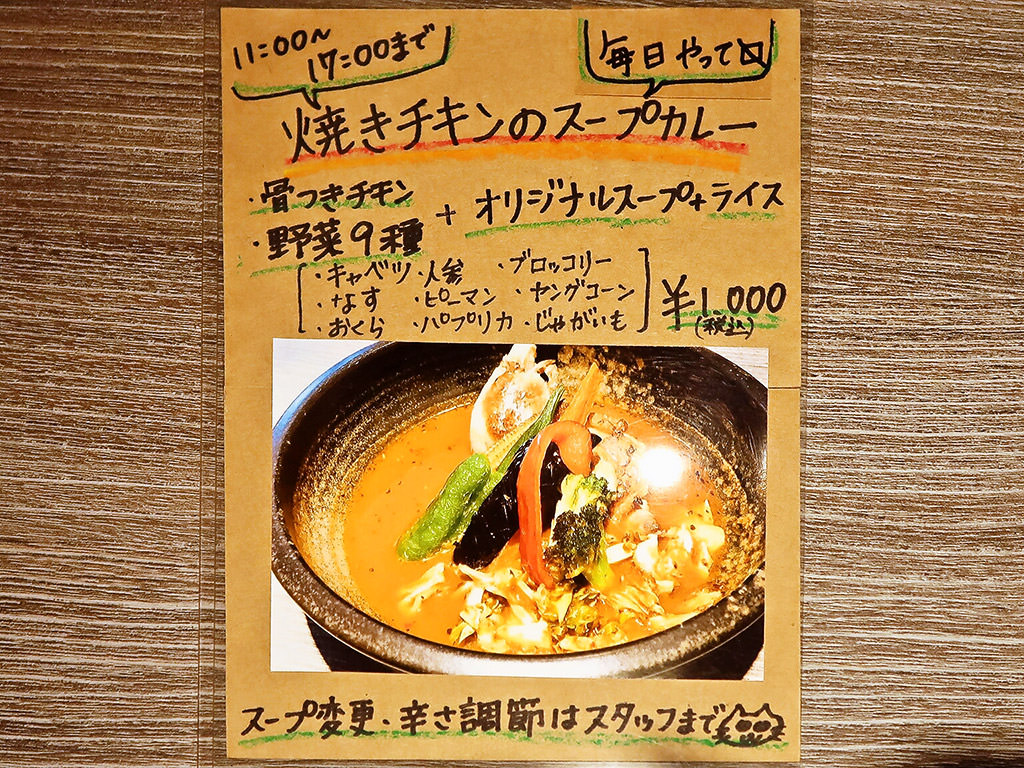 11:00〜
17:00まで
毎日やって〼
焼きチキンのスープカレー
・骨つきチキン
・野菜9種
+ オリジナルスープ+ライス
・キャベツ ・人参 ・ブロッコリー
・なす ・ピーマン ・ヤングコーン
・おくら ・パプリカ ・じゃがいも
¥1.000
(税込)
スープ変更・辛さ調節はスタッフまで